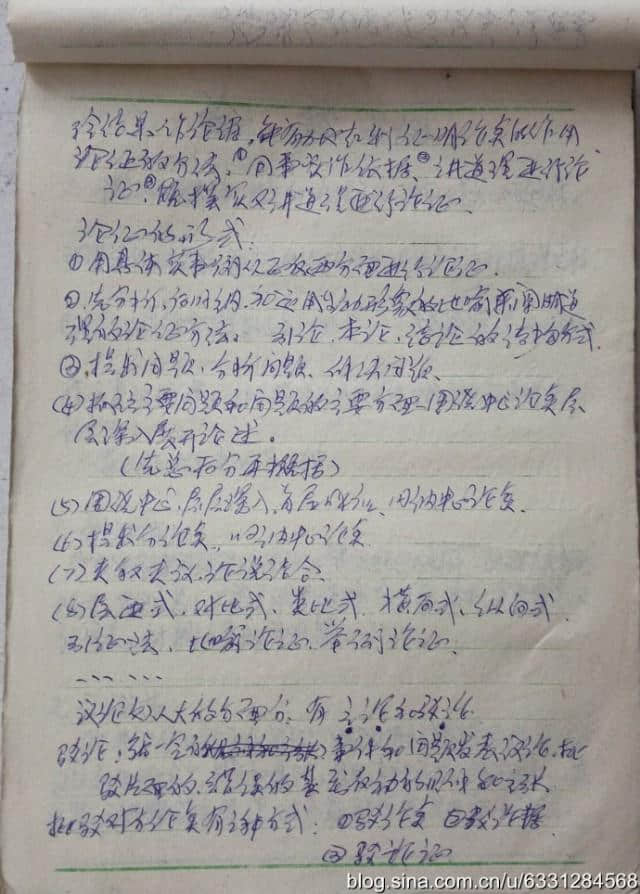 论结果,作论据,能有力地
论证的方法,①用事实作依据、②讲道理进行论
证③既摆事实又讲道理进行论证.
论证的形式:
①用具体实事例从正反两方面进行论证.
②先分析,后归纳,和运用生动形象的比喻来阐明道
理的论证方法. 引论,本论,结论的结构方式.
③,提出问题,分析问题、解决问题.
(4)抓住主要问题和问题的主要方面,围绕中心论点层
层深入展开论述。
(先总后分再概括)
(5)围绕中心,层层深入,归纳中心论点.
(6)提出分论点,归纳中心论点
(7)夹叙夹议,论说结合.
(8)层进式,对比式,类比式,横向式,纵向式.
引证法,比喻论证,举例论证.
……
议论文从大的方面分:有立论和驳论.
驳论,就一定的事件和问题发表议论,批
驳片面的、错误的甚至反动的见解和主张
批驳对方论点有三种方式:①驳论点 ②驳论据
③驳论证
blog.sina.com.cn/u/6331284568